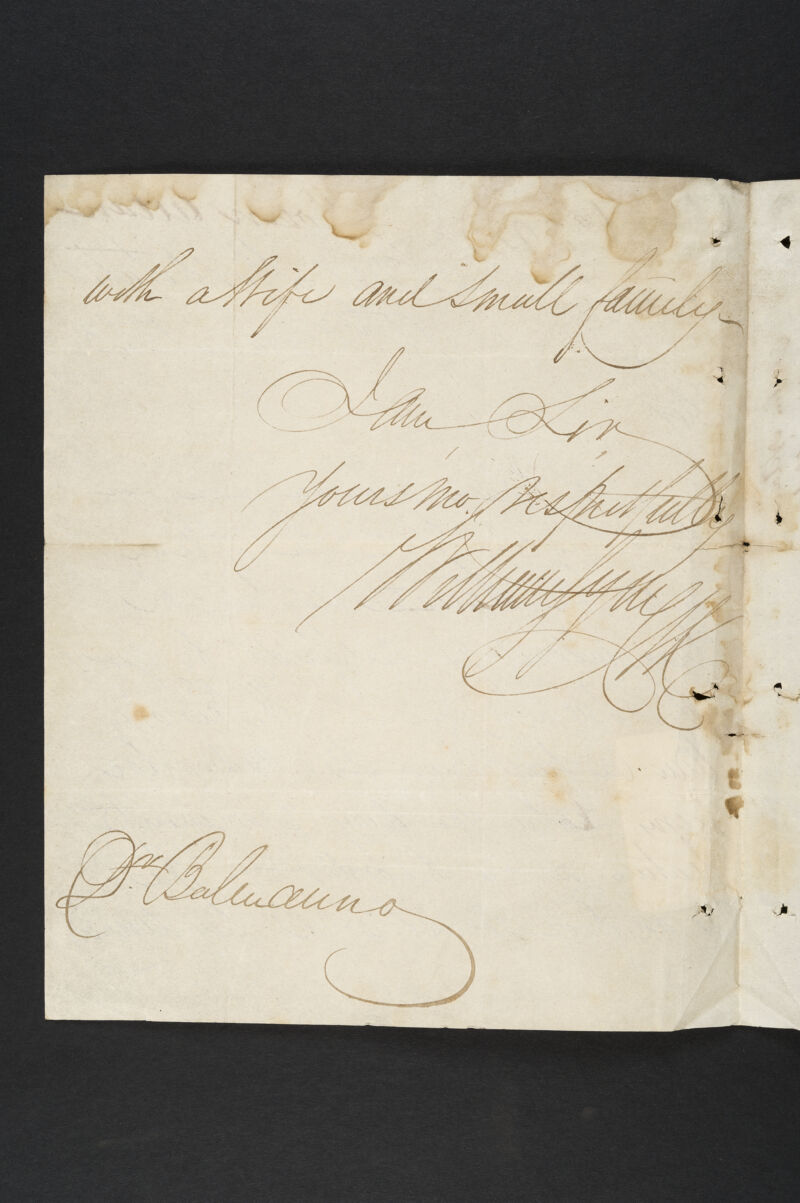 with a Wife and small family.
I am Sir
yours mo. respectfully
William Lyne
Dr. Balmanno